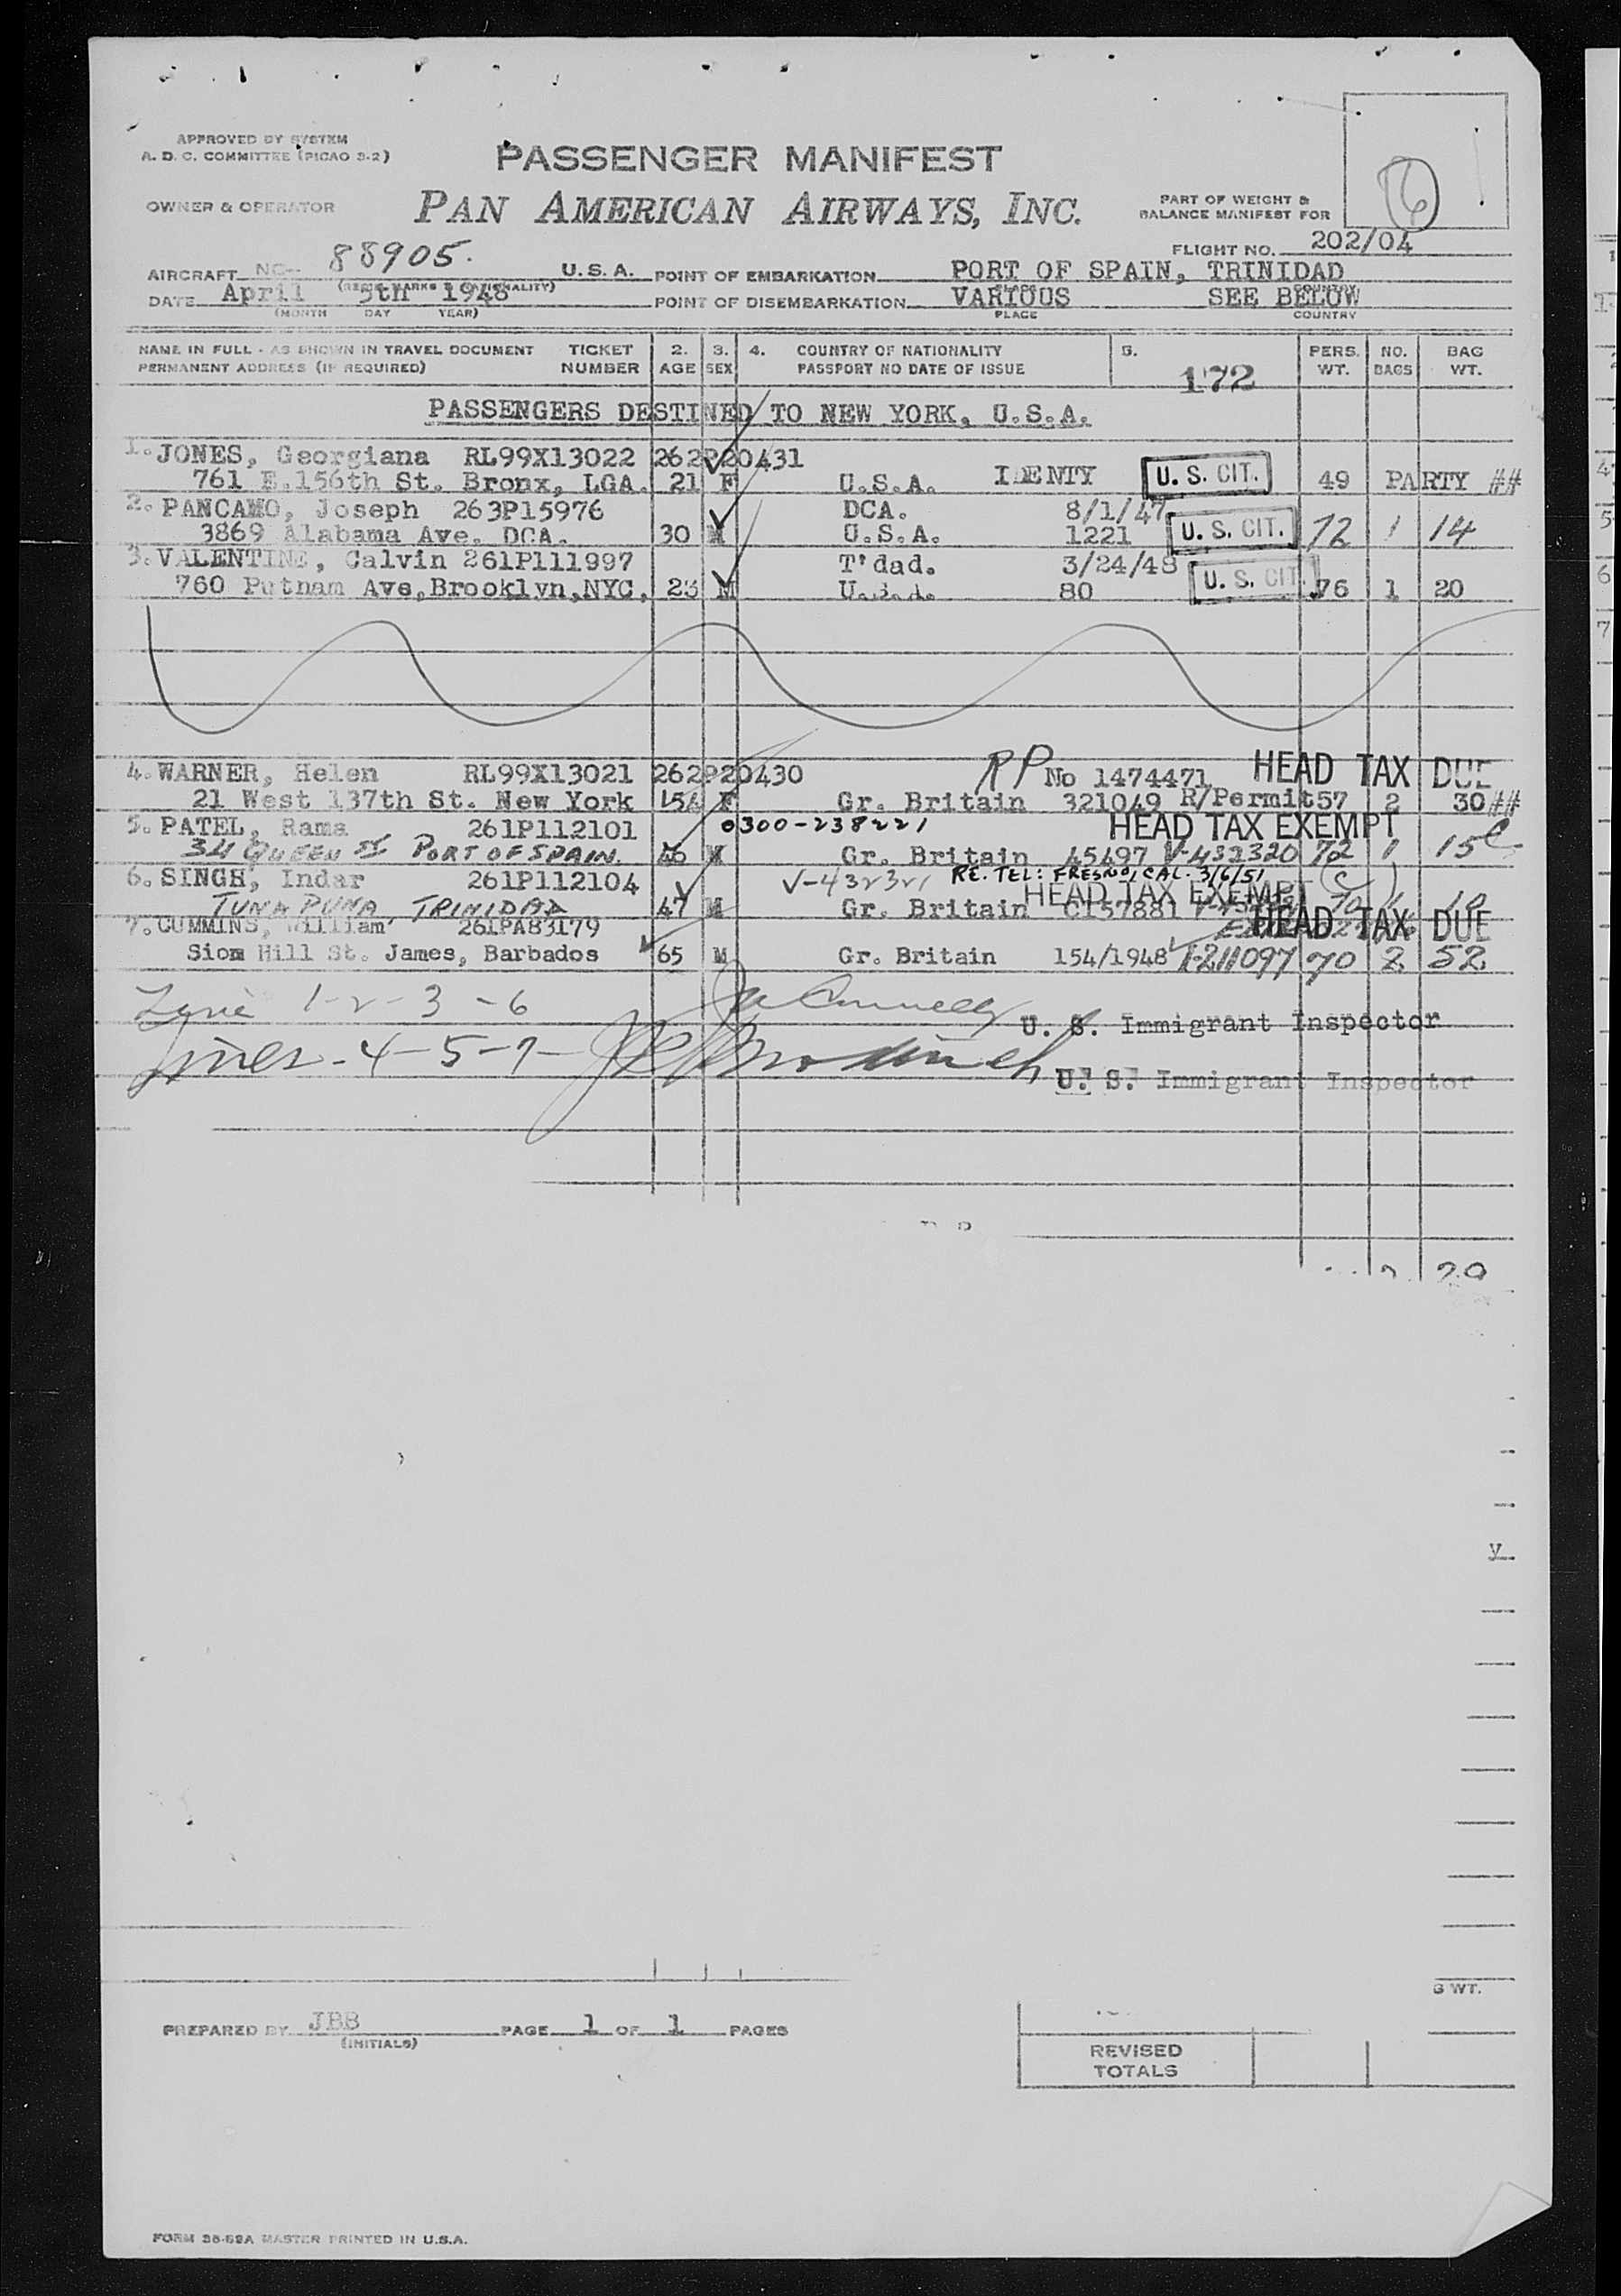 APPROVED BY SYSTEM
A. D. C. COMMITTEE (PICAO 3-2)
PASSENGER MANIFEST
OWNER & OPERATOR
PAN AMERICAN AIRWAYS, INC.
PART OF WEIGHT &
BALANCE MANIFEST FOR
6
FLIGHT NO. 202/04
AIRCRAFT NC- 88905. U.S.A. POINT OF EMBARKATION PORT OF SPAIN, TRINIDAD
DATE April 5th 1948 POINT OF DISEMBARKATION VARIOUS SEE BELOW
(MONTH DAY YEAR) PLACE COUNTRY
NAME IN FULL - AS SHOWN IN TRAVEL DOCUMENT TICKET 2. 3. 4. COUNTRY OF NATIONALITY 5. PERS. NO. BAG
PERMANENT ADDRESS (IF REQUIRED) NUMBER AGE SEX PASSPORT NO DATE OF ISSUE 172 WT. BAGS WT.
PASSENGERS DESTINED TO NEW YORK, U.S.A.
1. JONES, Georgiana RL99X13022 262P20431
761 E.156th St. Bronx, LGA. 21 F U.S.A. IDENTY U. S. CIT. 49 PARTY ##
2. PANCAMO, Joseph 263P15976 DCA. 8/1/47
3869 Alabama Ave. DCA. 30 M U.S.A. 1221 U. S. CIT. 72 1 14
3. VALENTINE, Calvin 261P111997 T'dad. 3/24/48
760 Putnam Ave, Brooklyn, NYC, 23 M U.S.A. 80 U. S. CIT 76 1 20
4. WARNER, Helen RL99X13021 262P20430 RP No 1474471 HEAD TAX DUE
21 West 137th St. New York 54 F Gr. Britain 321049 R/Permit 57 2 30 ##
5. PATEL, Rama 261P112101 0300-238221 HEAD TAX EXEMPT
34 QUEEN ST PORT OF SPAIN. 46 M Gr. Britain 45497 V-432320 72 1 15
6. SINGH, Indar 261P112104 V-432321 RE. TEL: FRESNO, CAL. 3/6/51
HEAD TAX EXEMPT
TUNA PUNA TRINIDAD 47 M Gr. Britain C157881 70 1 10
7. CUMMINS, William 261PA83179 HEAD TAX DUE
Sion Hill St. James, Barbados 65 M Gr. Britain 154/1948 I-211097 70 2 52
1-2-3-6
U. S. Immigrant Inspector
4-5-7
U. S. Immigrant Inspector
29
G WT.
PREPARED BY JBB PAGE 1 OF 1 PAGES
(INITIALS)
REVISED
TOTALS
FORM 38-52A MASTER PRINTED IN U.S.A.